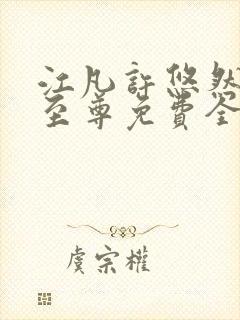 江凡許悠然
至尊免費全
虞宗權